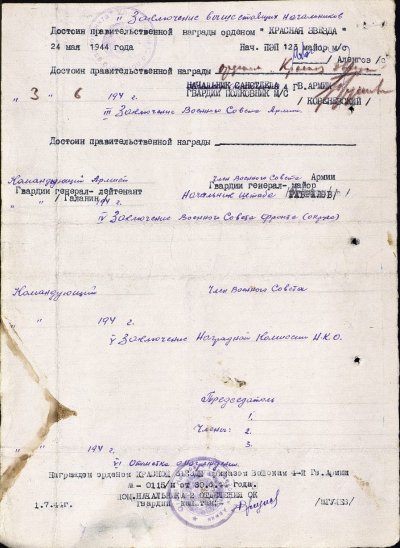 II Заключение вышестоящих Начальников
Достоин правительственной награды орденом " КРАСНАЯ ЗВЕЗДА "
24 мая 1944 года Нач. ПЭП 125 майор м/с
Достоин правительственной награды орденом Красная звезда
НАЧАЛЬНИК САНОТДЕЛА ГВ.АРМИИ
" 3 " 6 194 г. ГВАРДИИ ПОЛКОВНИК М/С
III Заключение Военного Совета Армии
Достоин правительственной награды
Командующий Армией Член Военного Совета Армии
Гвардии генерал-лейтенант Гвардии генерал-майор
/ Галанин/ Начальник штаба
" " 194 г.
IV Заключение Военного Совета Фронта (округа)
Командующий Член Военного Совета
" " 194 г.
V Заключение Наградной Комиссии Н.К.О.
Председатель
1.
Члены: 2.
3.
" " 194 г.
VI Отметка о награждении
Награжден орденом КРАСНАЯ ЗВЕЗДА приказом Войскам 4-й Гв. Армии
№ - 0115/н от 30.6.44 года.
ПОМ.НАЧАЛЬНИКА 2 ОТДЕЛЕНИЯ ОК
1.7.44г. Гвардии капитан